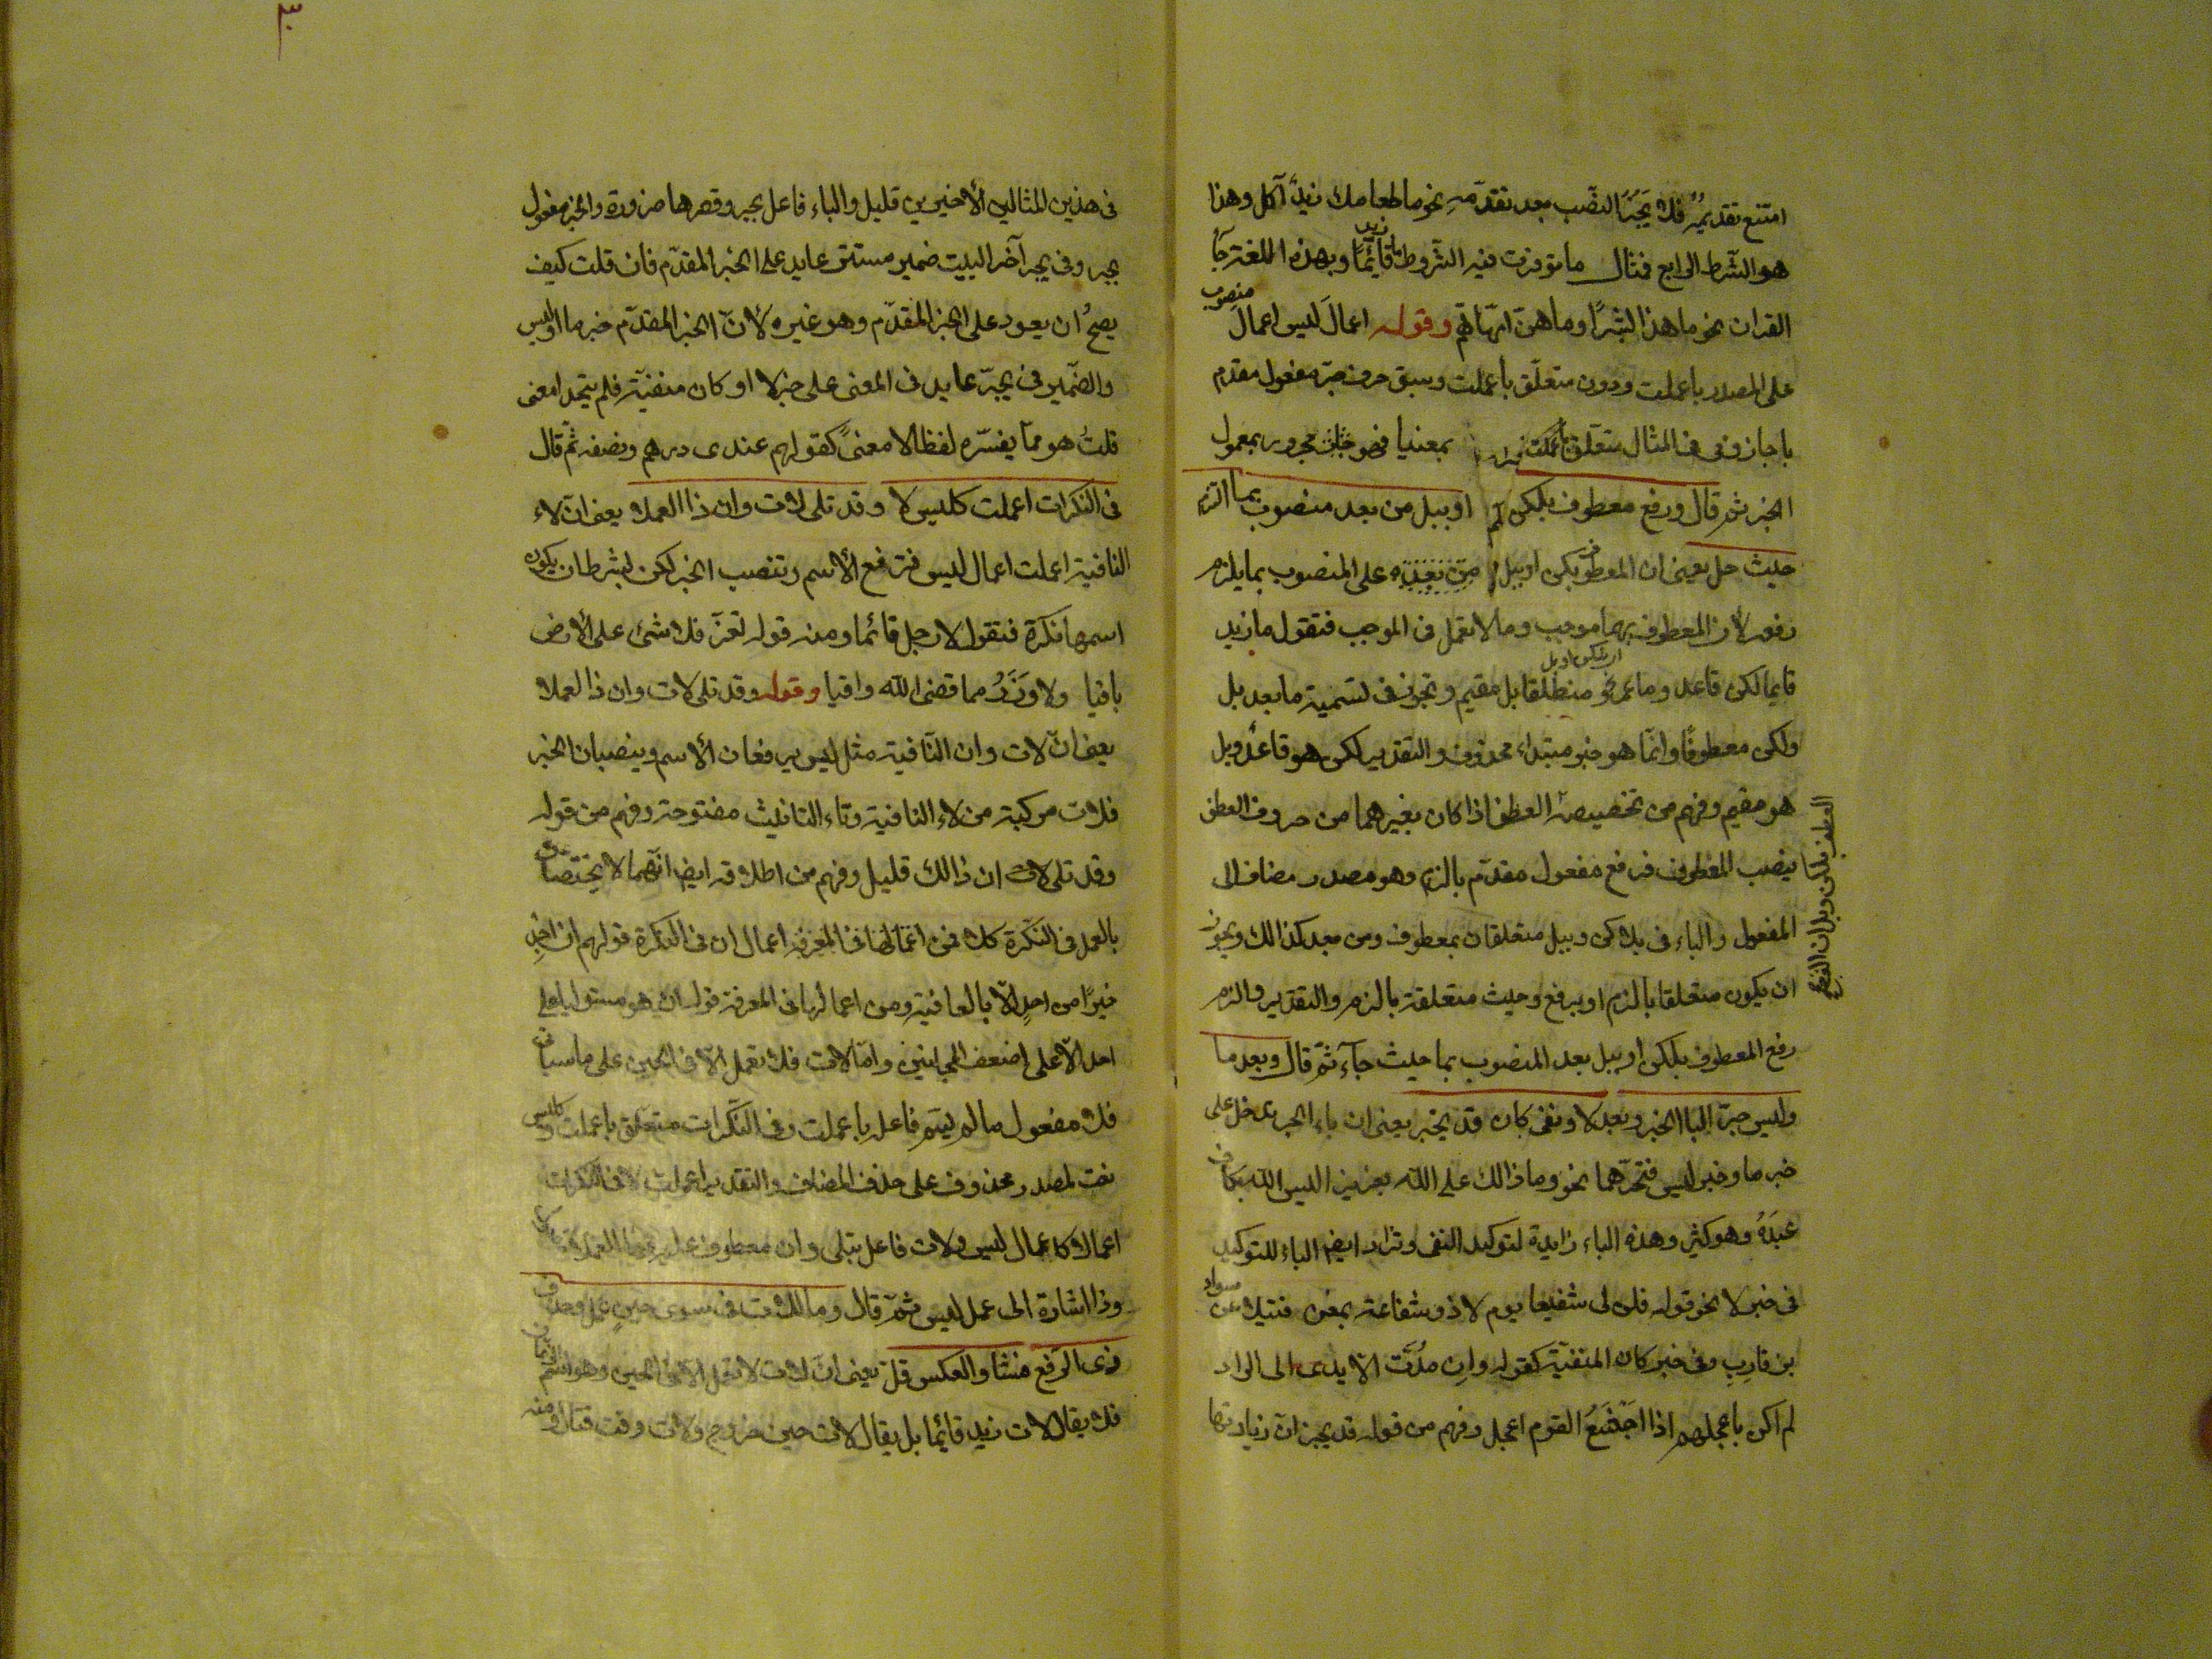 امتنع تقديمه فلا يجز النصب بعد تقدمه نحو ما طعامك زيد آكل وهذا
هو الشرط الرابع فمثال ما توفرت فيه الشروط ما زيد قائما وبهذه اللغة جآ
القران نحو ما هذا بشرًا وما هنّ امّهاتهم وقوله اعمالَ ليس اعمالَ منصوب
على المصدر باعملت ودون متعلّق باعملت وسبق حرف جرّ مفعول مقدم
باجاز وفي في المثال متعلّق بمعنيا فهو مجرور بمعمول
الخبر ثم قال ورفع معطوف بلكن او ببل من بعد منصوب بما الزم
حيث حل يعني ان المعطوف بلكن او ببل على المنصوب بما يلزم
رفعه لأن المعطوف بهما موجب وما لا تعمل في الموجب فتقول ما زيد
قايما لكن قاعد وما عمرو منطلقا بل مقيم وتجوز في تسمية ما بعد بل
ولكن معطوفًا وانّما هو خبر مبتداء محذوف والتقدير لكن هو قاعدٌ وبل
هو مقيم وفهم من تخصيصه العطف اذا كان بغيرهما من حروف العطف
ينصب المعطوف فرفع مفعول مقدّم بالزم وهو مصدر مضاف الى
المفعول والباء في بلاكن وببل متعلقان بمعطوف ومن بعد كذالك ويجوز
ان يكون متعلقا بالزم او برفع وحيث متعلقة بالزم والتقدير والزم
رفع المعطوف بلكن او ببل بعد المنصوب بما حيث جآء ثمّ قال وبعد ما
وليس جرّ البا الخبر وبعد لا ونفى كان قد يجر يعني ان باء الجر تدخل على
خبر ما وخبر ليس فتجرّهما نحو وما ذالك على الله بعزيز اليس الله بكاف
عبدَهُ وهو كثير وهذه الباء زايدة لتوكيد النفى وتزاد ايض الباء للتوكيد
في خبر لا نحو قوله فكن لى شفيعا يوم لا ذو شفاعة بمغن فتيلا عن سواد
بن قارب وفي خبر كان المنفيّة كقوله وان مُدَّت الأيدى الى الزاد
لم اكن باعجلهم اذا اجْشَعُ القوم اعجل وفهم من قوله قد يجر ان زيادتها
في هذين المثالين الأخيرين قليل والباء فاعل يجر وقصرها ضرورة والخبر مفعول
بجر وفي يجر آخر البيت ضمير مستتر عايد على الخبر المقدّم فان قلت كيف
يصحُ ان يعود على الخبر المقدّم وهو غيره لأنّ الخبر المقدّم خبر ما او ليس
والضّمير في يجرّ عايد في المعنى على خبر لا او كان منفيّة فلم يتحد امعنى
قلتُ هو ممّا يفسّره لفظا لا معنىً كقولهم عندى درهم ونصفه ثمّ قال
في النكرات اعملت كليس لا وقد تلى لات وان ذا العملا يعنى ان لاء
النافية اعملت اعمال ليس فترفع الأسم وتنصب الخبر لكن بشرط ان يكون
اسمها نكرة فتقول لا رجل قائما ومنه قوله تعزّ فلا شئ على الأرض
باقيا ولا وَزَرٌ مما قضى الله واقيا وقوله وقد تلى لات وان ذا العملا
يعنى انّ لات وان النّافية مثل ليس يرفعان الأسم وينصبان الخبر
فلات مركبة من لاء النافية وتاء التانيث مفتوحة وفهم من قوله
وقد تلى لات ان ذالك قليل وفهم من اطلاقه ايض انّهما لا يختصّان
بالعمل في النّكرة كلا فمن اعمالها في المعرفة اعمال ان في النّكرة قولهم ان احدٌ
خيرًا من احدٍ الّا بالعافية ومن اعمالها في المعرفة قوله ان هو مستوليا على
احد الّا على اضعف المجانين وامّا لات فلا تعمل الّا في الحين على ماسياتى
فلا مفعول ما لم يسّم فاعله باعملت وفي النّكرات متعلّق باعملت وكليس
نعت لمصدر محذوف على حذف المضاف والتقدير اعملت لا في النكرات
اعمالا كاعمال ليس ولات فاعل بتلى وان معطوف عليه والعملا
وذا اشارة الى عمل ليس ثمّ قال وما للات في سوى حينٍ عمل وحذف
ذى الرّفع فشا والعكس قل يعنى انّ لات لا تعمل الّا في الحين وهو اسم الزمان
فلا يقال لات زيد قائما بل يقال لات حين خروج ولات وقت قتال ومنه